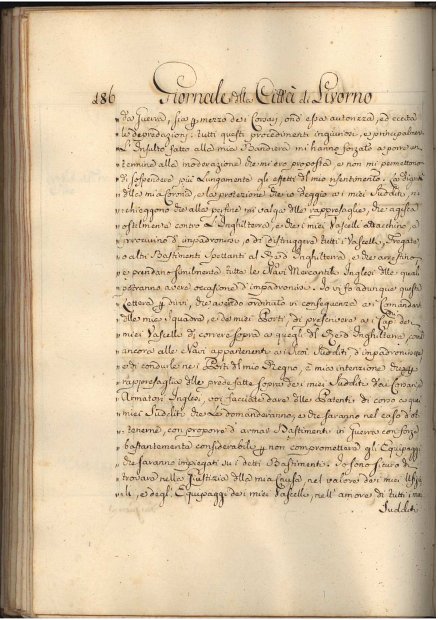 186 Giornale della Città di Livorno
da Guerra, sia p. mezzo dei Corsari, ond'essa autorizza, ed eccita
le depredazioni: tutti questi procedimenti ingiuriosi, e principalmen
L'Insulto fatto alla mia Bandiera mi hanno forzato a porre un
termine alla moderazione che mi ero proposta, e non mi permettono
di sospendere più Lungamente gli effetti del mio risentimento. La dignità
della mia Corona, e la protezione che io deggio ai miei Sudditi, ri
chieggono che alla perfine mi valga delle rappresaglie, che agisca
ostilmente contro L'Inghilterra, e che i miei Vascelli attacchino, e
procurino d'impadronirsi, o di distruggere tutti i Vascelli, Fregate
o altri Bastimenti Spettanti al Re d'Inghilterra, e che arrestino
e prendano similmente tutte le Navi Mercantili Inglesi delle quali
potranno avere ocasione d'impadronirsi. Io vi fo adunque questa
Lettera p. dirvi, che avendo ordinato in conseguenza ai Comandanti
delle mie Squadre, e dei miei Porti, di prescrivere ai Cap. dei
miei Vascelli di correre sopra a quegli del Re d'Inghilterra, come
ancora alle Navi appartenenti ai Suoi Sudditi, d'impadronirsene
e di condurle nei Porti del mio Regno, è mia intenzione che
rappresaglie delle prede fatte sopra dei miei Sudditi dai Corsari
Armatori Inglesi, voi facciate dare delle Patenti di corso a quei
miei Sudditi che Le domanderanno, e che saranno nel caso d'ot
tenerne, con proporre d'armar Bastimenti in Guerra con forze
bastantemente considerabili p. non compromettere gli Equipaggi
che saranno impiegati su i detti Bastimenti. Io sono sicuro di
trovare nella Giustizia della mia Causa nel valore dei miei Uffizi
ali, e degl'Equipaggi dei miei Vascelli, nell'amore di tutti i miei
Sudditi